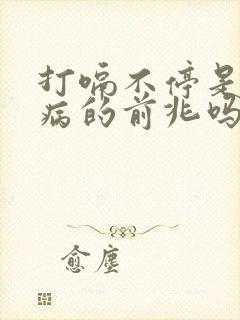 打嗝不停是
病的前兆吗
愈尘